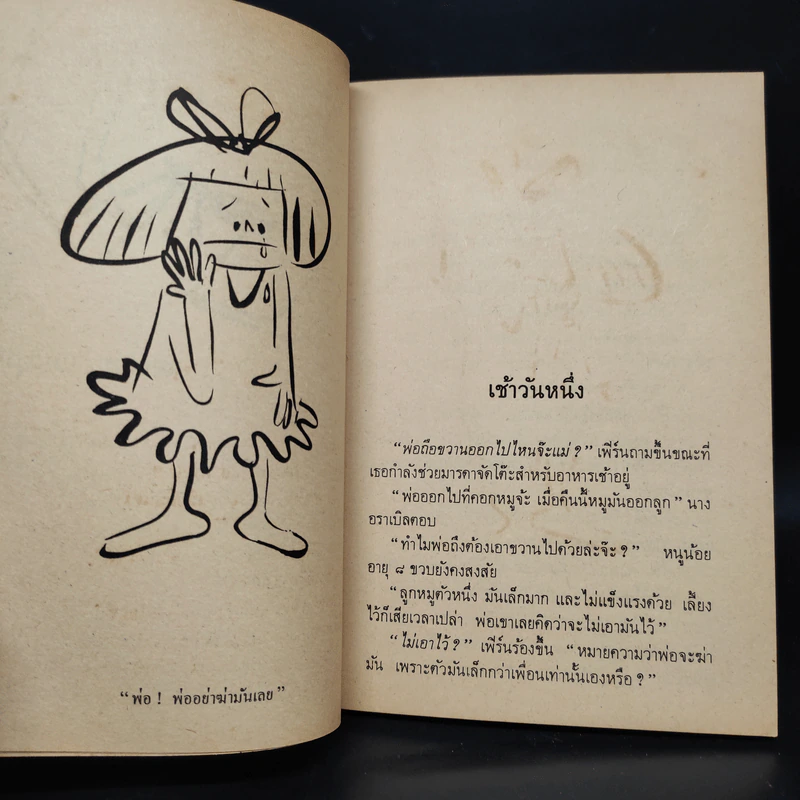 "พ่อ ! พ่ออย่าฆ่ามันเลย"
เช้าวันหนึ่ง
"พ่อถือขวานออกไปไหนจ๊ะแม่ ?" เฟิร์นถามขึ้นขณะที่
เธอกำลังช่วยมารดาจัดโต๊ะสำหรับอาหารเช้าอยู่
"พ่อออกไปที่คอกหมูจ้ะ เมื่อคืนนี้หมูมันออกลูก" นาง
อราเบิลตอบ
"ทำไมพ่อถึงต้องเอาขวานไปด้วยล่ะจ๊ะ ?" หนูน้อย
อายุ ๘ ขวบยังคงสงสัย
"ลูกหมูตัวหนึ่ง มันเล็กมาก และไม่แข็งแรงด้วย เลี้ยง
ไว้ก็เสียเวลาเปล่า พ่อเขาเลยคิดว่าจะไม่เอามันไว้"
"ไม่เอาไว้ ?" เฟิร์นร้องขึ้น "หมายความว่าพ่อจะฆ่า
มัน เพราะตัวมันเล็กกว่าเพื่อนเท่านั้นเองหรือ ?"